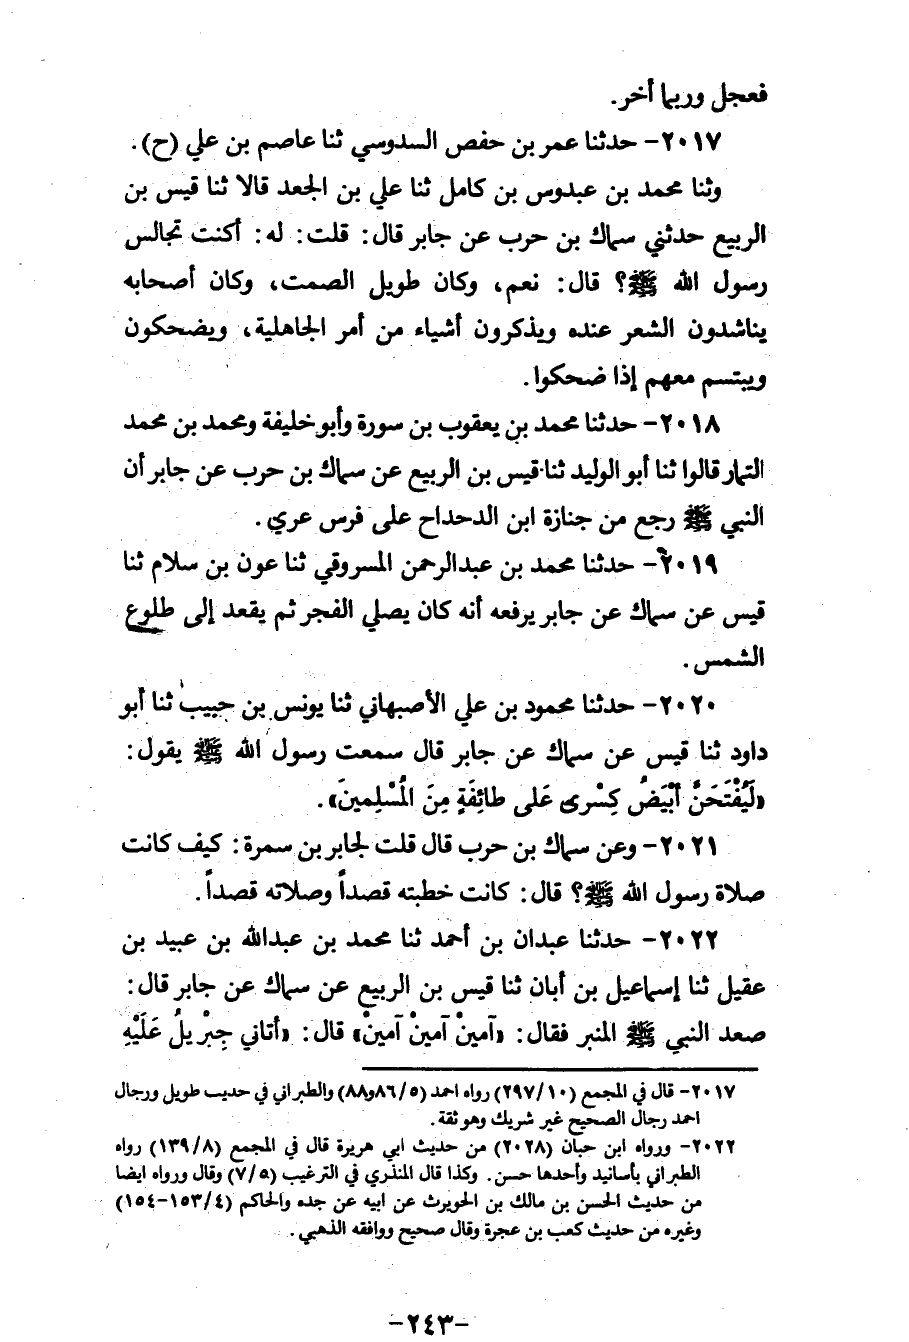 فعجل وربما أخر.
٢٠١٧- حدثنا عمر بن حفص السدوسي ثنا عاصم بن علي (ح).
وثنا محمد بن عبدوس بن كامل ثنا علي بن الجعد قالا ثنا قيس بن
الربيع حدثني سماك بن حرب عن جابر قال: قلت: له: أكنت تجالس
رسول الله ﷺ؟ قال: نعم، وكان طويل الصمت، وكان أصحابه
يناشدون الشعر عنده ويذكرون أشياء من أمر الجاهلية، ويضحكون
ويبتسم معهم إذا ضحكوا.
٢٠١٨- حدثنا محمد بن يعقوب بن سورة وأبو خليفة ومحمد بن محمد
التمار قالوا ثنا أبو الوليد ثنا قيس بن الربيع عن سماك بن حرب عن جابر أن
النبي ﷺ رجع من جنازة ابن الدحداح على فرس عري.
٢٠١٩- حدثنا محمد بن عبدالرحمن المسروقي ثنا عون بن سلام ثنا
قيس عن سماك عن جابر يرفعه أنه كان يصلي الفجر ثم يقعد إلى طلوع
الشمس.
٢٠٢٠- حدثنا محمود بن علي الأصبهاني ثنا يونس بن حبيب ثنا أبو
داود ثنا قيس عن سماك عن جابر قال سمعت رسول الله ﷺ يقول:
«لَيُفْتَحَنَّ أَبْيَضُ كِسْرى عَلى طائِفَةٍ مِنَ الْمُسْلِمينَ».
٢٠٢١- وعن سماك بن حرب قال قلت لجابر بن سمرة: كيف كانت
صلاة رسول الله ﷺ؟ قال: كانت خطبته قصداً وصلاته قصداً.
٢٠٢٢- حدثنا عبدان بن أحمد ثنا محمد بن عبدالله بن عبيد بن
عقيل ثنا إسماعيل بن أبان ثنا قيس بن الربيع عن سماك عن جابر قال:
صعد النبي ﷺ المنبر فقال: «آمينْ آمينْ آمينْ» قال: «أتاني جِبْريلُ عَلَيْهِ
٢٠١٧- قال في المجمع (٢٩٧/١٠) رواه احمد (٨٦/٥و٨٨) والطبراني في حديب طويل ورجال
احمد رجال الصحيح غير شريك وهو ثقة.
٢٠٢٢- ورواه ابن حبان (٢٠٢٨) من حديث ابي هريرة قال في المجمع (١٣٩/٨) رواه
الطبراني بأسانيد وأحدها حسن. وكذا قال المنذري في الترغيب (٧/٥) وقال ورواه ايضا
من حديث الحسن بن مالك بن الحويرث عن ابيه عن جده والحاكم (١٥٣/٤-١٥٤)
وغيره من حديث كعب بن عجرة وقال صحيح ووافقه الذهبي.
-٢٤٣-